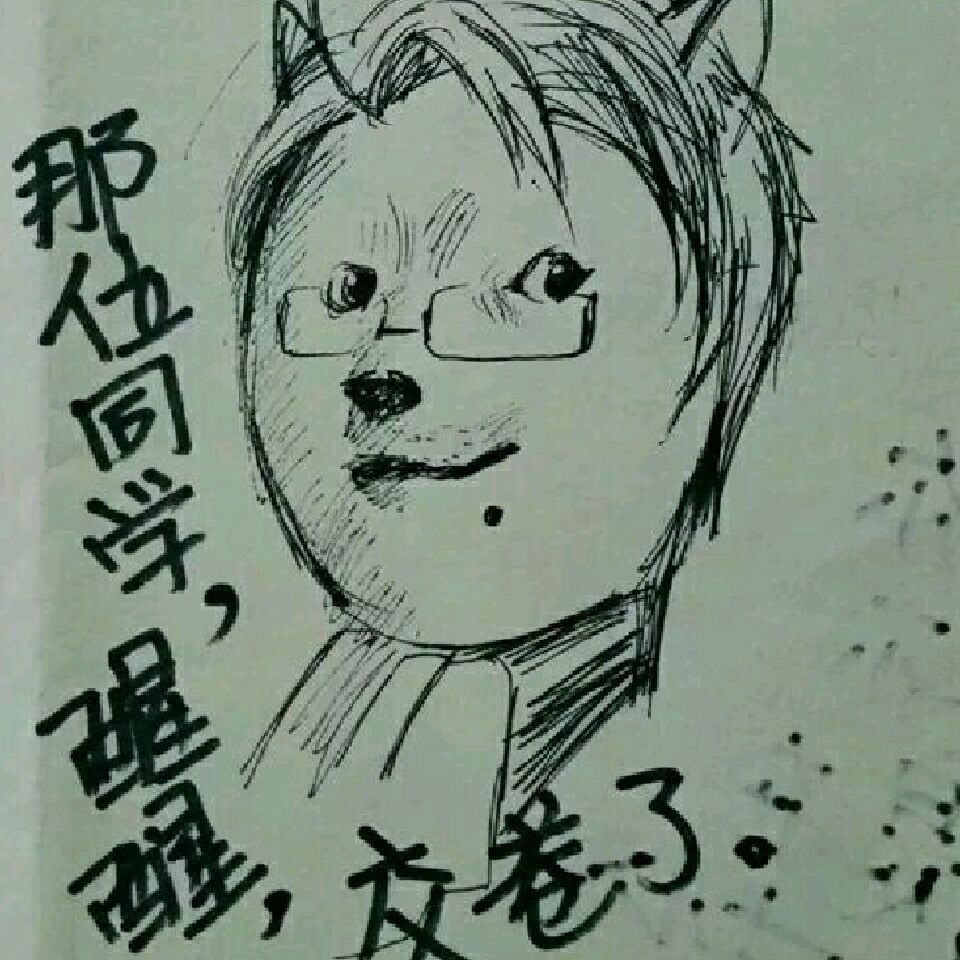 那位同学，醒醒，
交卷了。